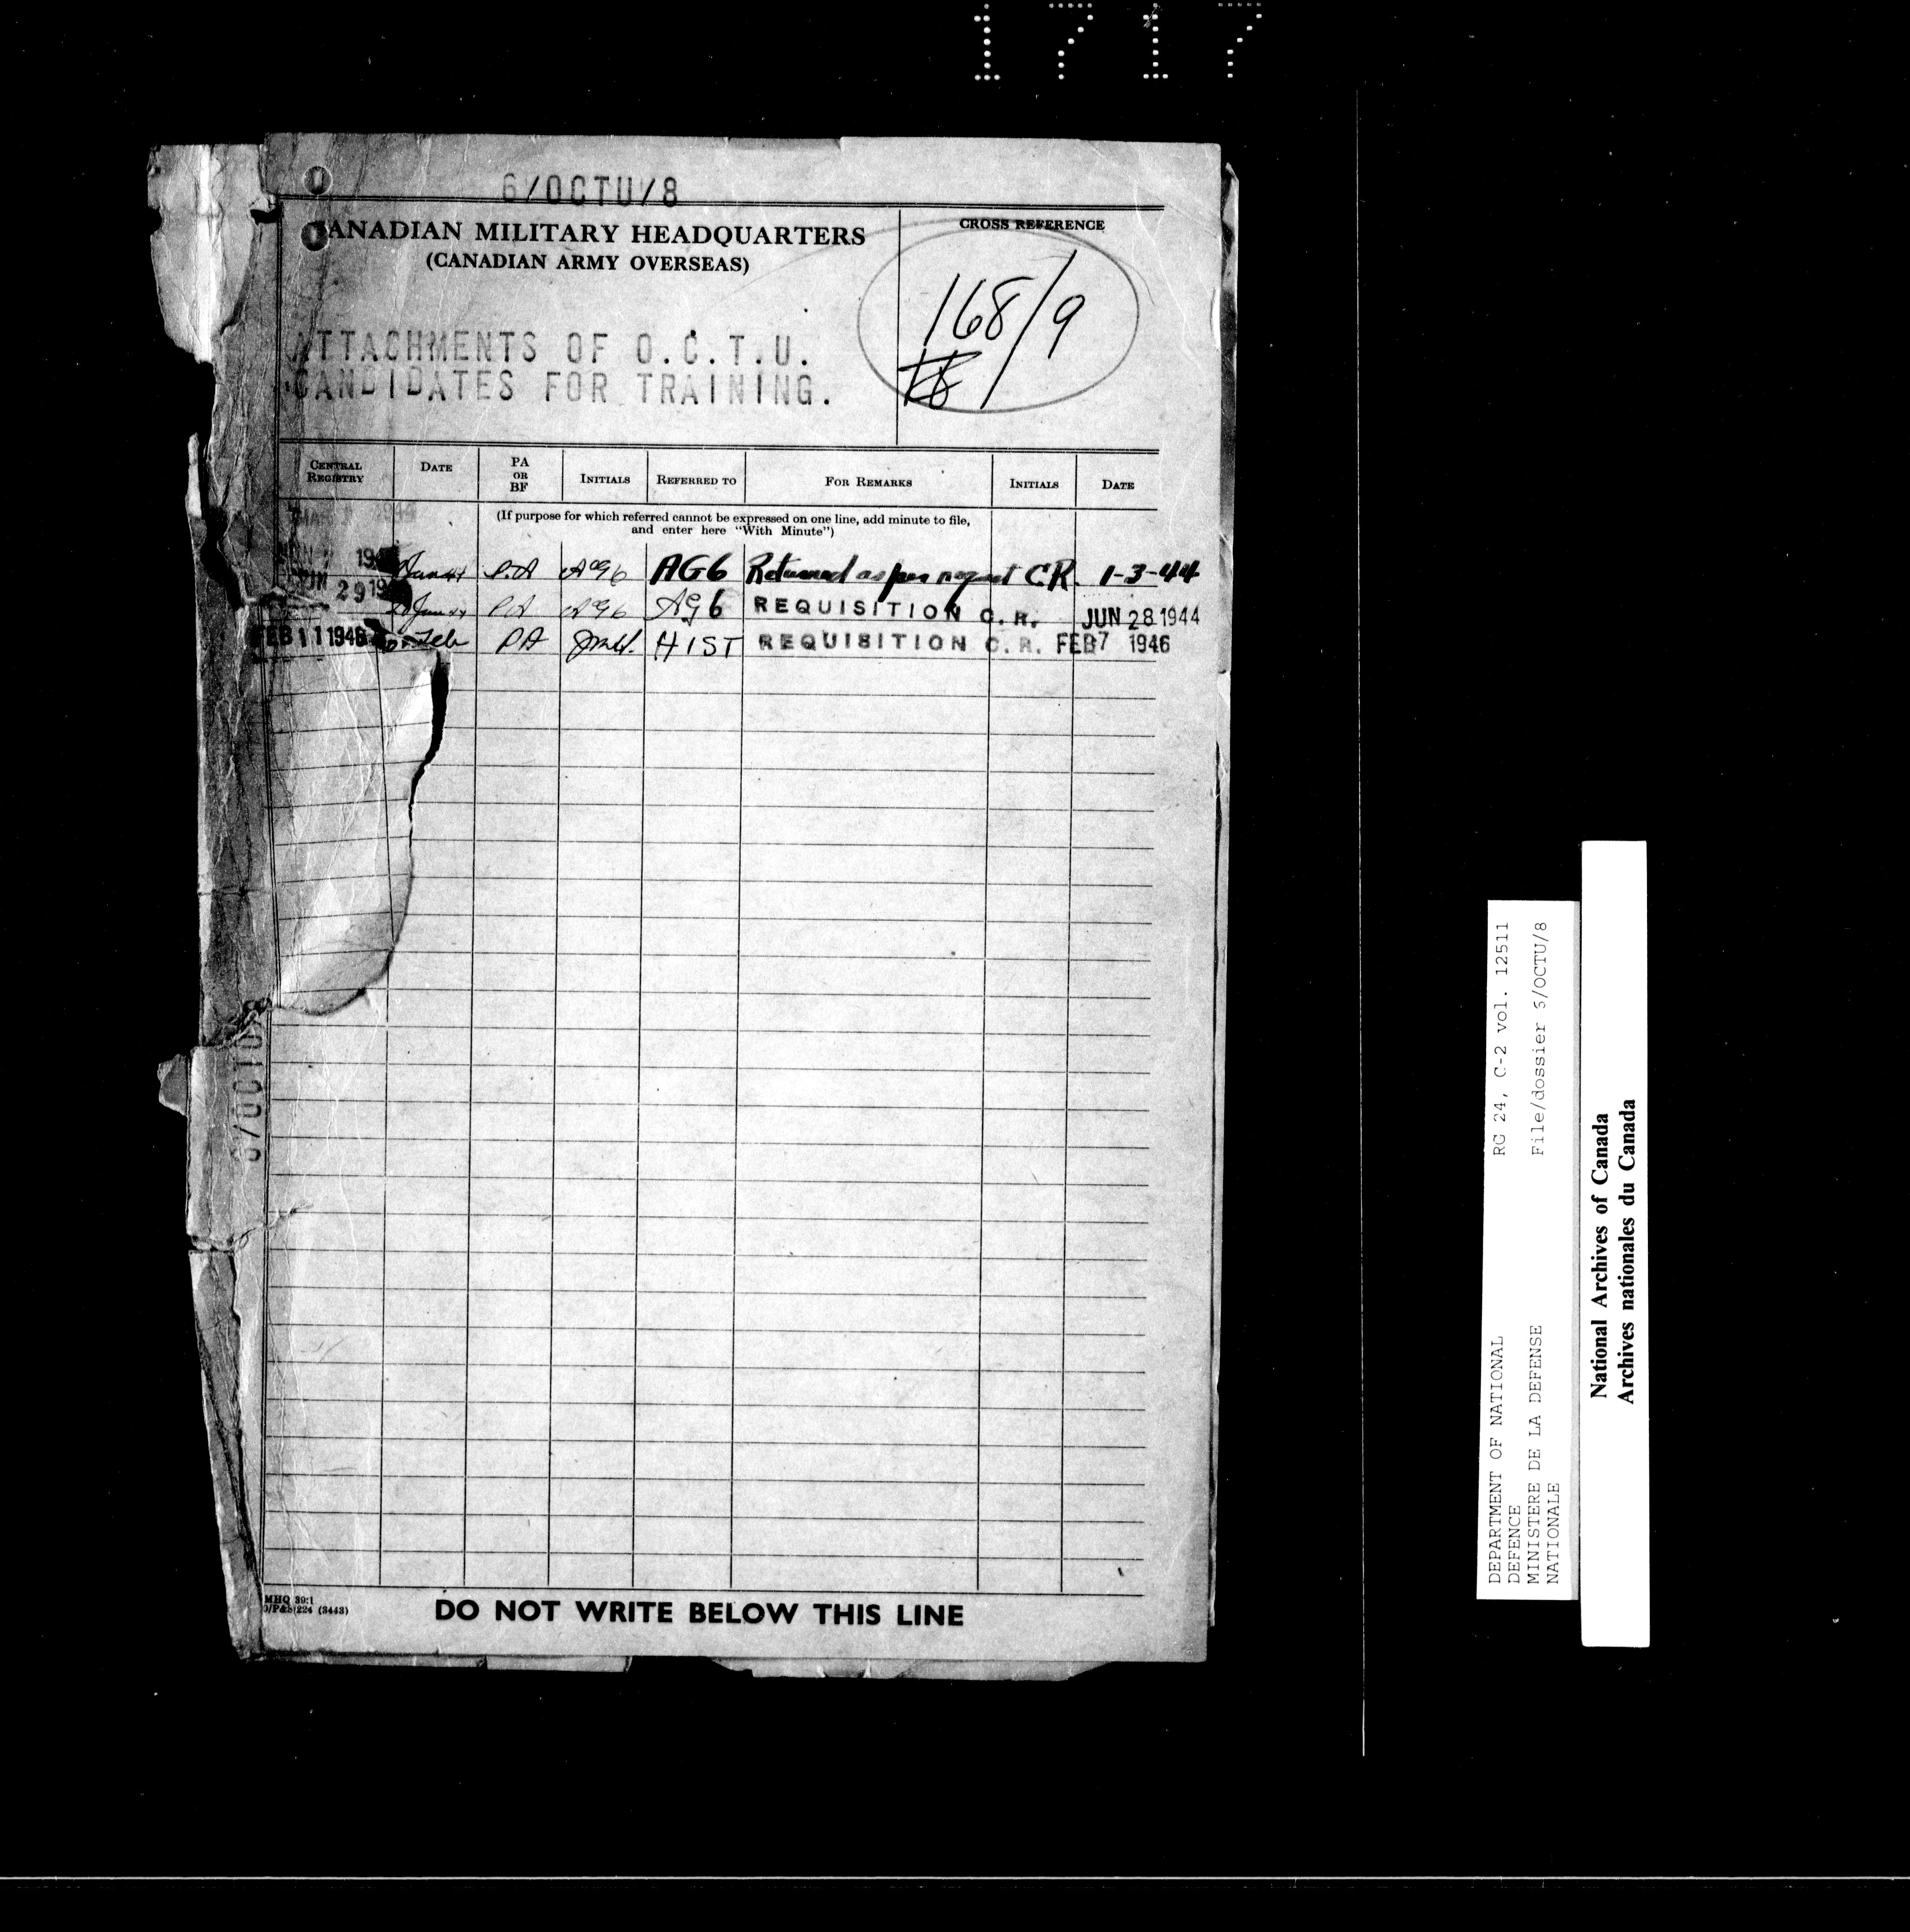 1717
6/OCTU/8
CANADIAN MILITARY HEADQUARTERS
(CANADIAN ARMY OVERSEAS)
CROSS REFERENCE
168/9
ATTACHMENTS OF O.C.T.U.
CANDIDATES FOR TRAINING.
CENTRAL REGISTRY DATE PA OR BF INITIALS REFERRED TO FOR REMARKS INITIALS DATE
(If purpose for which referred cannot be expressed on one line, add minute to file,
and enter here "With Minute")
P.A AG6 AG6 Returned as per request CR. 1-3-44
29 PA AG6 AG6 REQUISITION C.R. JUN 28 1944
FEB 11 1946 Feb PA HIST REQUISITION C.R. FEB 7 1946
6/OCTU/8
MHQ 39:1
O/P&S/224 (3443)
DO NOT WRITE BELOW THIS LINE
DEPARTMENT OF NATIONAL DEFENCE RG 24, C-2 vol. 12511
MINISTERE DE LA DEFENSE NATIONALE File/dossier 6/OCTU/8
National Archives of Canada
Archives nationales du Canada